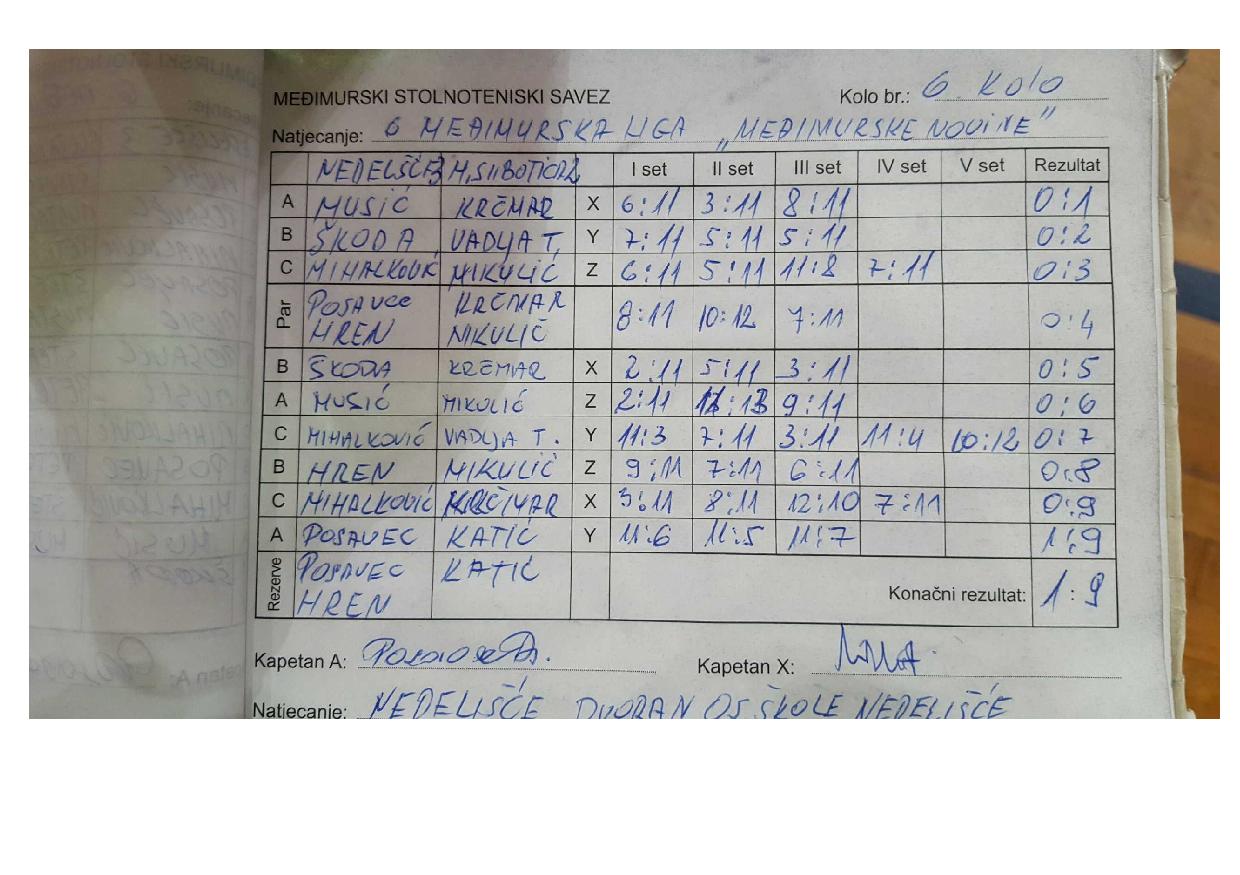 MEĐIMURSKI STOLNOTENISKI SAVEZ Kolo br.: 6. KOLO
Natjecanje: 6 MEĐIMURSKA LIGA "MEĐIMURSKE NOVINE"
NEDELIŠĆE 3 M. SUBOTICA 2 I set II set III set IV set V set Rezultat
A MUSIĆ KRČMAR X 6:11 3:11 8:11 0:1
B ŠKODA VADLJA T. Y 7:11 5:11 5:11 0:2
C MIHALKOVIĆ MIKULIĆ Z 6:11 5:11 11:8 7:11 0:3
Par POSAVEC KRČMAR 8:11 10:12 7:11 0:4
HREN MIKULIĆ
B ŠKODA KRČMAR X 2:11 5:11 3:11 0:5
A MUSIĆ MIKULIĆ Z 2:11 11:13 9:11 0:6
C MIHALKOVIĆ VADLJA T. Y 11:3 7:11 3:11 11:4 10:12 0:7
B HREN MIKULIĆ Z 9:11 7:11 6:11 0:8
C MIHALKOVIĆ KRČMAR X 3:11 8:11 12:10 7:11 0:9
A POSAVEC KATIĆ Y 11:6 11:5 11:7 1:9
Rezerve POSAVEC KATIĆ
HREN
Konačni rezultat: 1:9
Kapetan A: Kapetan X:
Natjecanje: NEDELIŠĆE DVORAN OŠ ŠKOLE NEDELIŠĆE